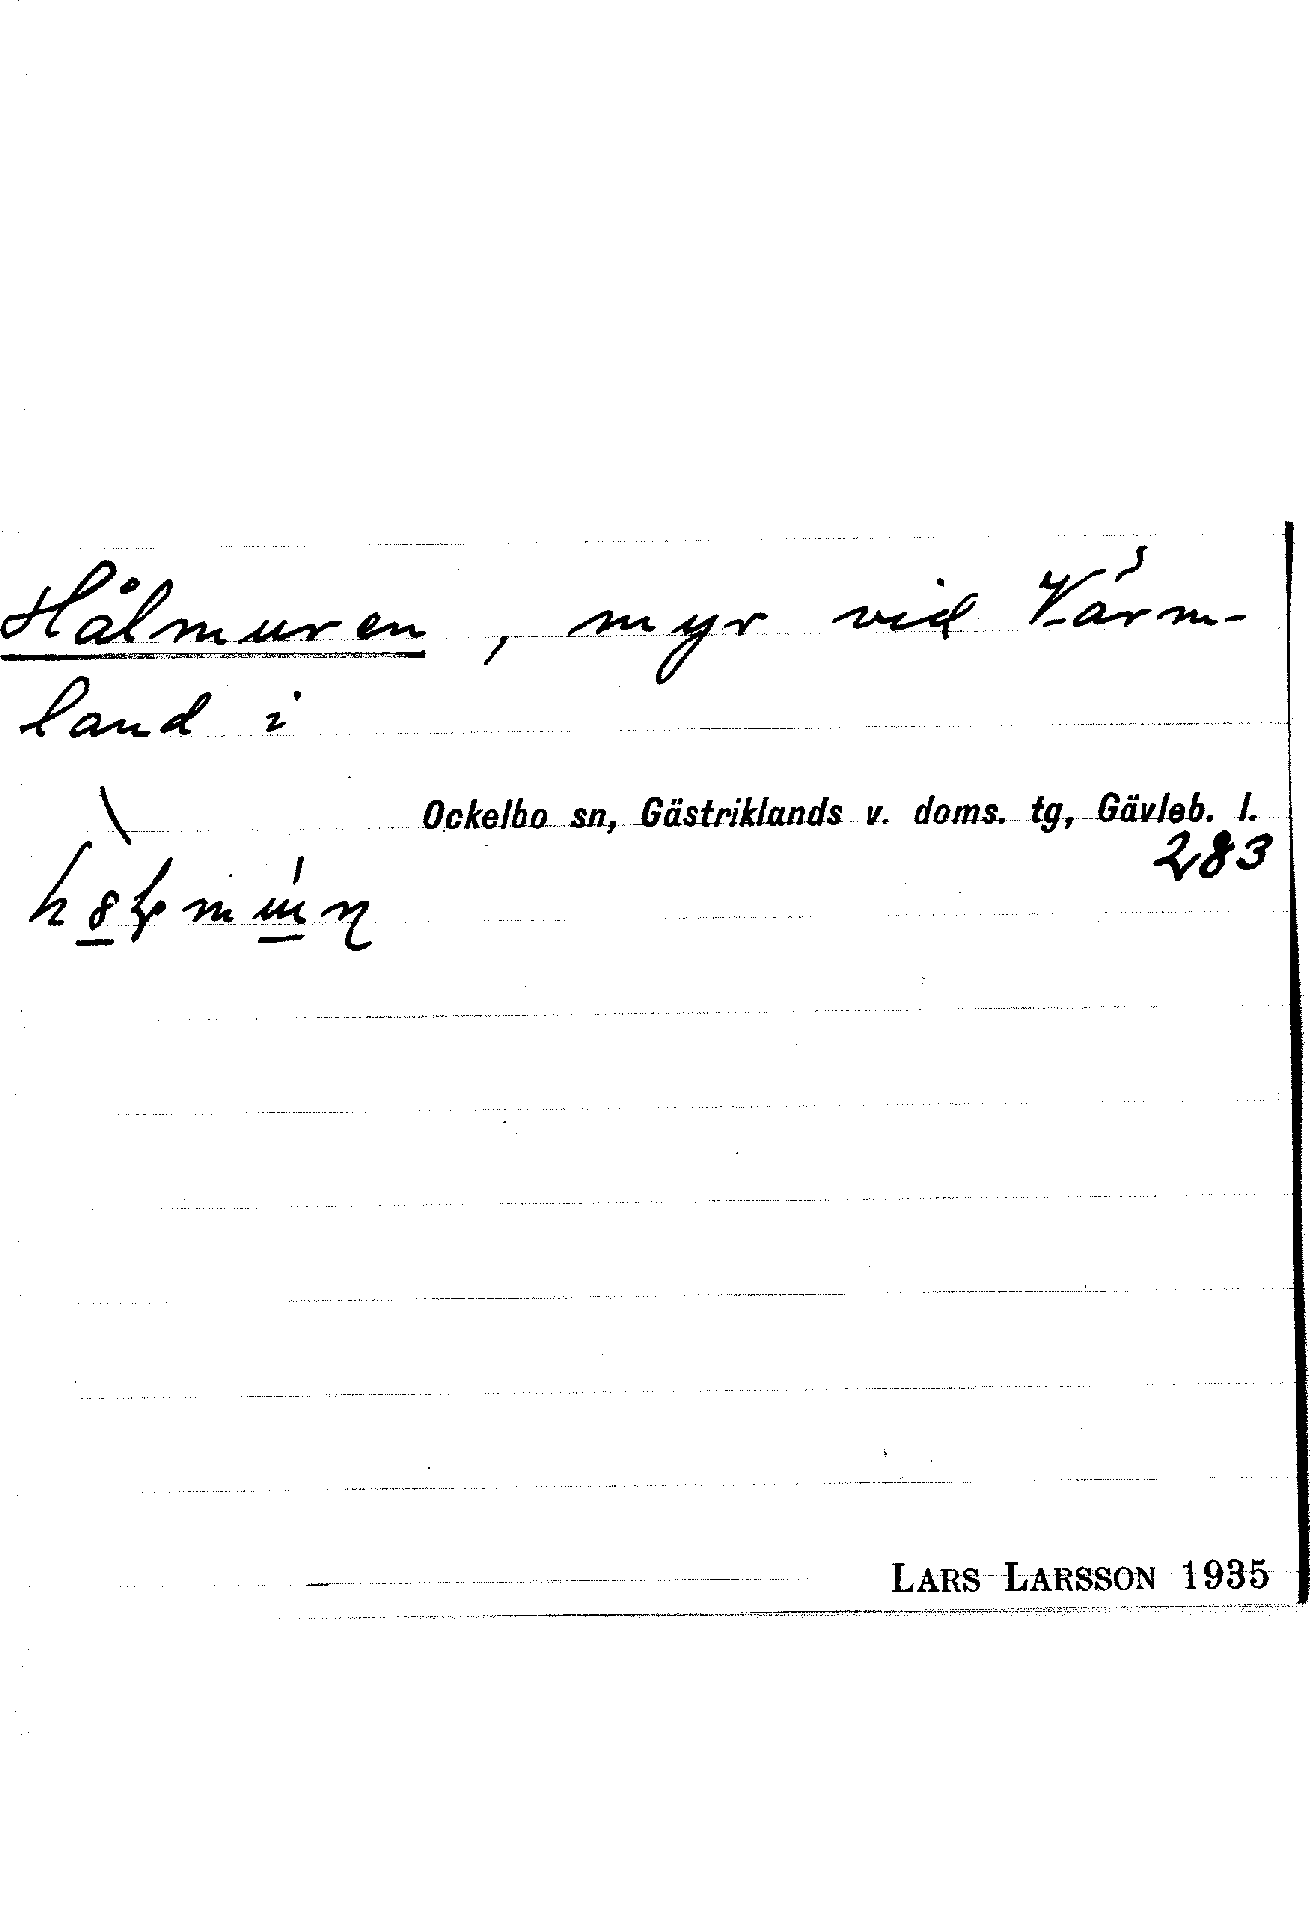 Hålmuren, myr vid Värm-
land i
Ockelbo sn, Gästriklands v. doms. tg, Gävleb. l.
283
LARS LARSSON 1935